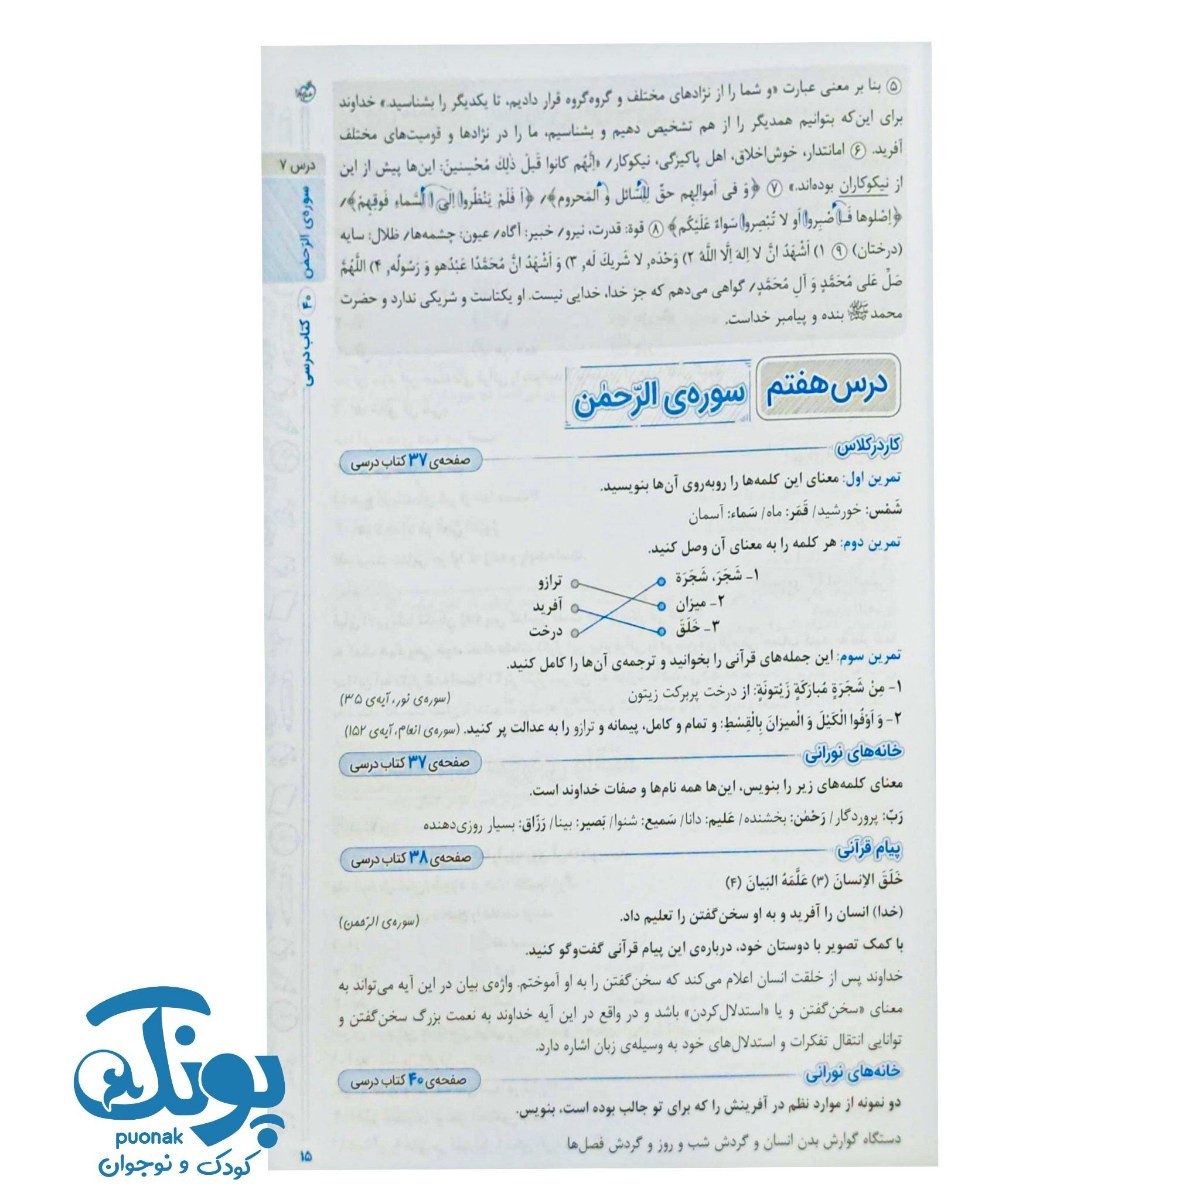 ⑤ بنا بر معنی عبارت «و شما را از نژادهای مختلف و گروه‌گروه قرار دادیم، تا یکدیگر را بشناسید.» خداوند
برای این‌که بتوانیم همدیگر را از هم تشخیص دهیم و بشناسیم، ما را در نژادها و قومیت‌های مختلف
آفرید. ⑥ امانتدار، خوش‌اخلاق، اهل پاکیزگی، نیکوکار/ «اِنَّهُم کانوا قَبلَ ذلِكَ مُحْسِنینَ: این‌ها پیش از این
از نیکوکاران بوده‌اند.» ⑦ ﴿وَ فی اَموالِهِم حقٌّ لِلسّائل وَ المَحروم﴾/ ﴿اَ فَلَمْ یَنْظُروا اِلَی السَّماءِ فَوقِهِمْ﴾/
﴿اِصْلوها فَاصْبِروا اَو لا تُبْصِروا سَواءٌ عَلَیْكُم﴾ ⑧ قوة: قدرت، نیرو/ خبیر: آگاه/ عیون: چشمه‌ها/ ظلال: سایه
(درختان) ⑨ ۱) اَشْهَدُ انَّ لا اِلهَ اِلَّا اللَّهُ ۲) وَحْدَه، لا شَریكَ لَه، ۳) وَ اَشْهَدُ انَّ مُحَمَّدًا عَبْدُهو وَ رَسُولُه، ۴) اللَّهُمَّ
صَلِّ عَلی مُحَمَّدٍ وَ آلِ مُحَمَّدٍ/ گواهی می‌دهم که جز خدا، خدایی نیست. او یکتاست و شریکی ندارد و حضرت
محمد ﷺ بنده و پیامبر خداست.
درس ۷
سوره‌ی الرّحمٰن
۴۰ کتاب درسی
درس هفتم
سوره‌ی الرّحمٰن
کار در کلاس
صفحه‌ی ۳۷ کتاب درسی
تمرین اول: معنای این کلمه‌ها را روبه‌روی آن‌ها بنویسید.
شَمْس: خورشید/ قَمَر: ماه/ سَماء: آسمان
تمرین دوم: هر کلمه را به معنای آن وصل کنید.
۱- شَجَرَ، شَجَرَة ترازو
۲- میزان آفرید
۳- خَلَقَ درخت
تمرین سوم: این جمله‌های قرآنی را بخوانید و ترجمه‌ی آن‌ها را کامل کنید.
۱- مِنْ شَجَرَةٍ مُبارَكَةٍ زَیْتونَةٍ: از درخت پربرکت زیتون (سوره‌ی نور، آیه‌ی ۳۵)
۲- وَ اَوْفُوا الْكَیْلَ وَ الْمیزانَ بِالْقِسْطِ: و تمام و کامل، پیمانه و ترازو را به عدالت پر کنید. (سوره‌ی انعام، آیه‌ی ۱۵۲)
خانه‌های نورانی
صفحه‌ی ۳۷ کتاب درسی
معنای کلمه‌های زیر را بنویس، این‌ها همه نام‌ها و صفات خداوند است.
رَبّ: پروردگار/ رَحْمٰن: بخشنده/ عَلیم: دانا/ سَمیع: شنوا/ بَصیر: بینا/ رَزّاق: بسیار روزی‌دهنده
پیام قرآنی
صفحه‌ی ۳۸ کتاب درسی
خَلَقَ الاِنسانَ (۳) عَلَّمَهُ البَیانَ (۴)
(خدا) انسان را آفرید و به او سخن‌گفتن را تعلیم داد. (سوره‌ی الرّحمن)
با کمک تصویر با دوستان خود، درباره‌ی این پیام قرآنی گفت‌وگو کنید.
خداوند پس از خلقت انسان اعلام می‌کند که سخن‌گفتن را به او آموختم. واژه‌ی بیان در این آیه می‌تواند به
معنای «سخن‌گفتن و یا «استدلال‌کردن» باشد و در واقع در این آیه خداوند به نعمت بزرگ سخن‌گفتن و
توانایی انتقال تفکرات و استدلال‌های خود به وسیله‌ی زبان اشاره دارد.
خانه‌های نورانی
صفحه‌ی ۴۰ کتاب درسی
دو نمونه از موارد نظم در آفرینش را که برای تو جالب بوده است، بنویس.
دستگاه گوارش بدن انسان و گردش شب و روز و گردش فصل‌ها
۱۵
پونک
puonak
کودک و نوجوان